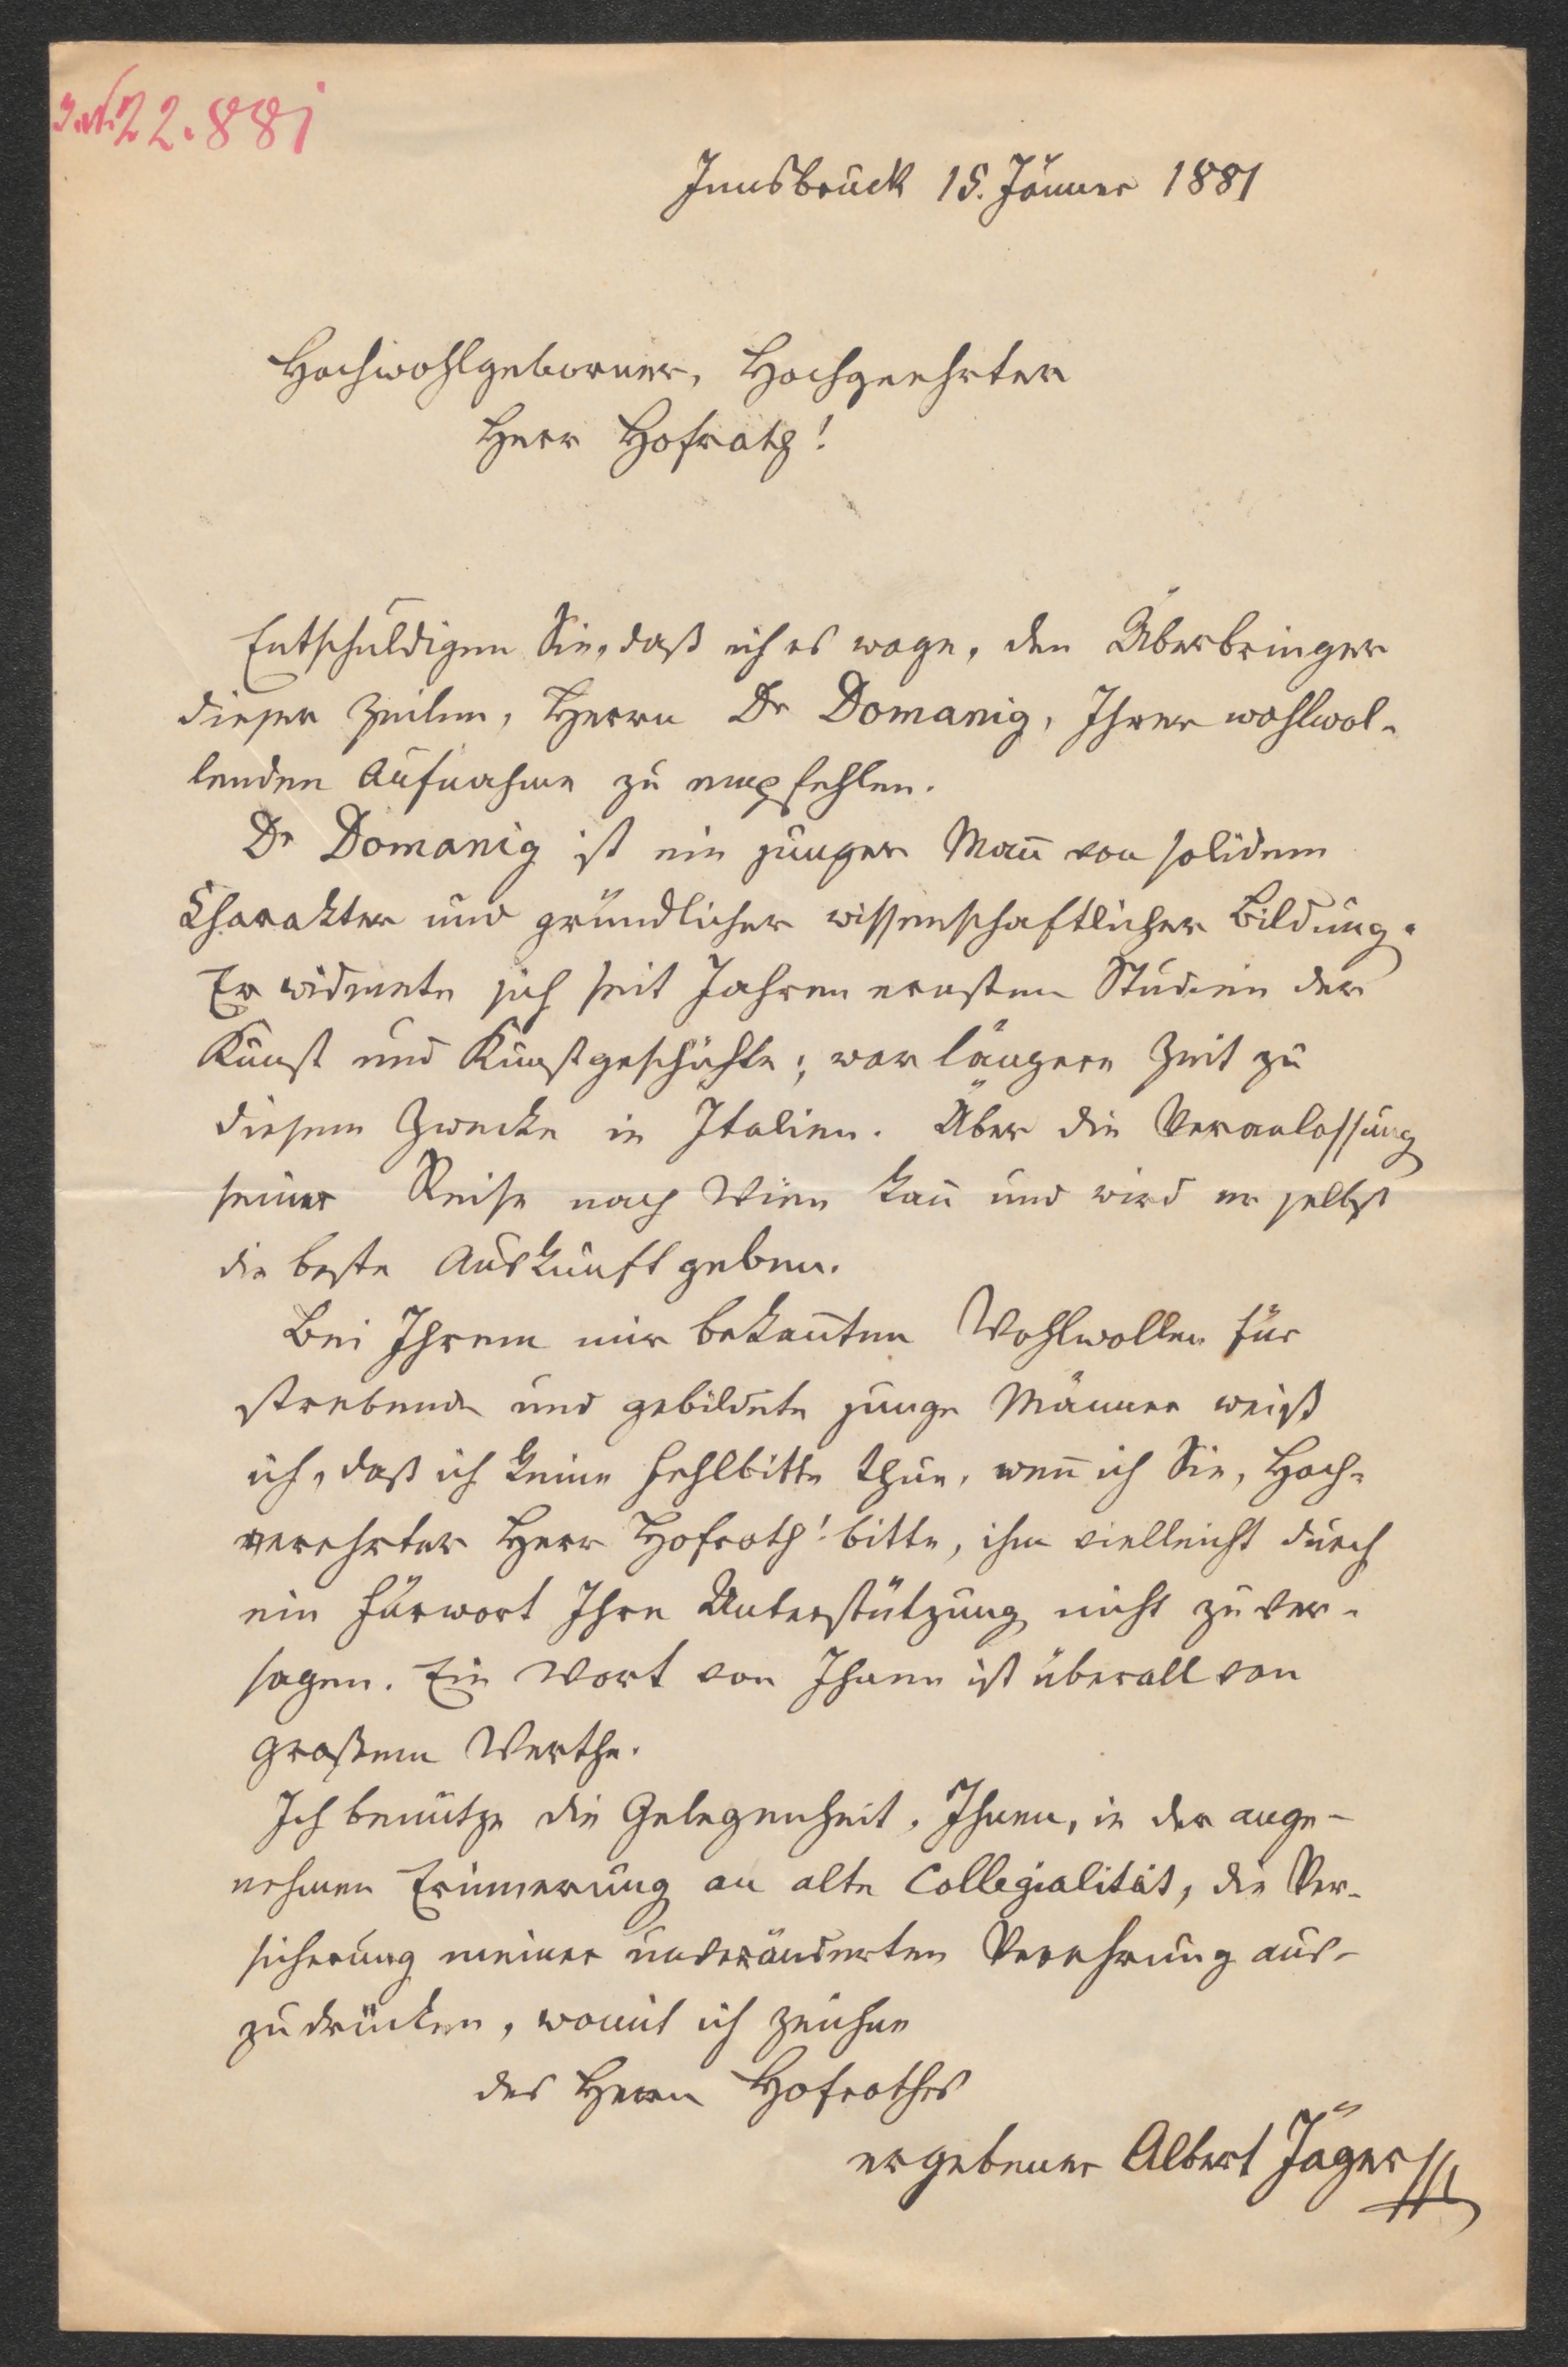 22.881
Innsbruck 15. Jänner 1881
Hochwohlgeborner, Hochgeehrter
Herr Hofrath!
Entschuldigen Sie, daß ich es wage, den Überbringer
dieser Zeilen, Herrn Dr Domanig, Ihrer wohlwol-
lenden Aufnahme zu empfehlen.
Dr Domanig ist ein junger Mañ von solidem
Charakter und gründlicher wissenschaftlicher Bildung.
Er widmete sich seit Jahren ernsten Studien der
Kunst und Kunstgeschichte; war längere Zeit zu
diesem Zwecke in Italien. Über die Veranlassung
seiner Reise nach Wien kañ und wird er selbst
die beste Auskunft geben.
Bei Ihrem mir bekañten Wohlwollen für
strebende und gebildete junge Männer weiß
ich, daß ich keine Fehlbitte thue, weñ ich Sie, Hoch-
verehrter Herr Hofrath! bitte, ihm vielleicht durch
ein Fürwort Ihre Unterstützung nicht zu ver-
sagen. Ein Wort von Ihnen ist überall von
großem Werthe.
Ich benütze die Gelegenheit, Ihnen, in der ange-
nehmen Erinnerung an alte Collegialität, die Ver-
sicherung meiner unveränderten Verehrung aus-
zudrücken, womit ich zeichne
des Herrn Hofrathes
ergebener Albert Jäger